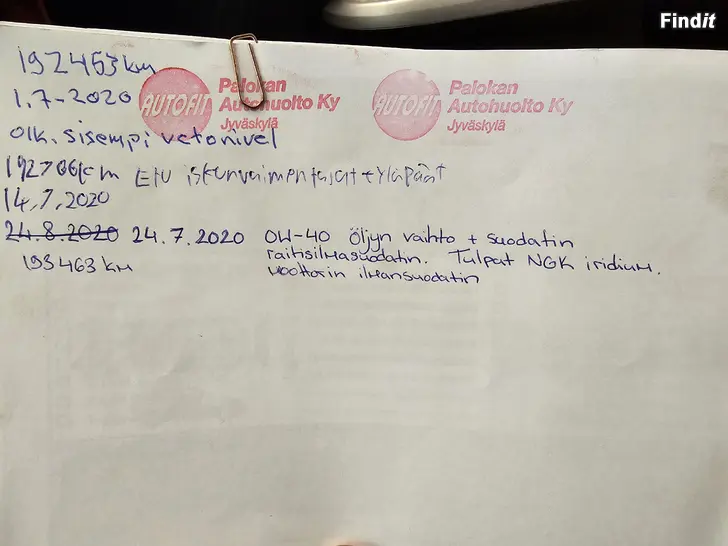 Findit
192453 km
1.7-2020
AUTOFIT Palokan
Autohuolto Ky
Jyväskylä
AUTOFIT Palokan
Autohuolto Ky
Jyväskylä
oik. sisempi vetonivel
192766km Etu iskunvaimentajat + yläpäät
14.7.2020
24.8.2020 24.7.2020 0W-40 öljyn vaihto + suodatin
193463 km raitisilmasuodatin. Tulpat NGK iridium.
moottorin ilmansuodatin